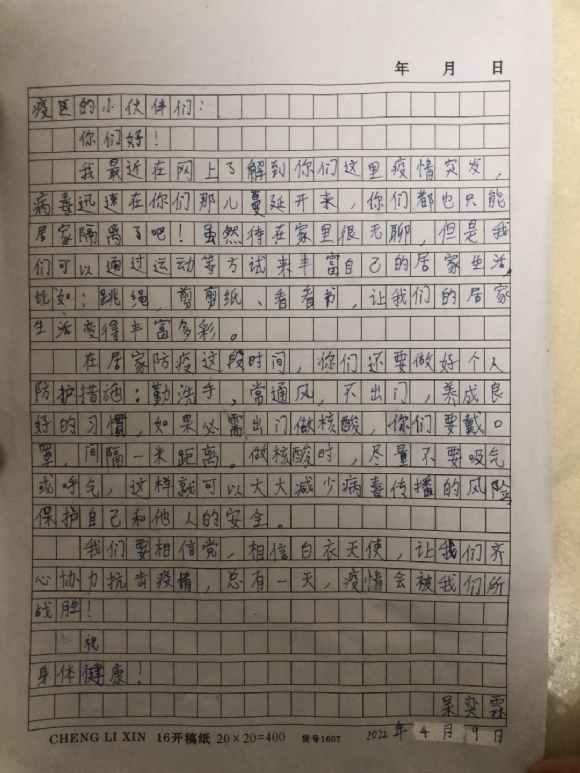 年 月 日
疫区的小伙伴们：
你们好！
我最近在网上了解到你们这里疫情突发，
病毒迅速在你们那儿蔓延开来，你们都也只能
居家隔离了吧！虽然待在家里很无聊，但是我
们可以通过运动等方试来丰富自己的居家生活，
比如：跳绳、剪剪纸、看看书，让我们的居家
生活变得丰富多彩。
在居家防疫这段时间，你们还要做好个人
防护措施：勤洗手，常通风，不出门，养成良
好的习惯，如果必需出门做核酸，你们要戴口
罩，间隔一米距离。做核酸时，尽量不要吸气
或呼气，这样就可以大大减少病毒传播的风险，
保护自己和他人的安全。
我们要相信党，相信白衣天使，让我们齐
心协力抗击疫情，总有一天，疫情会被我们所
战胜！
祝
身体健康！
奕霖
CHENG LI XIN 16开稿纸 20×20=400 货号1607 2022年4月9日